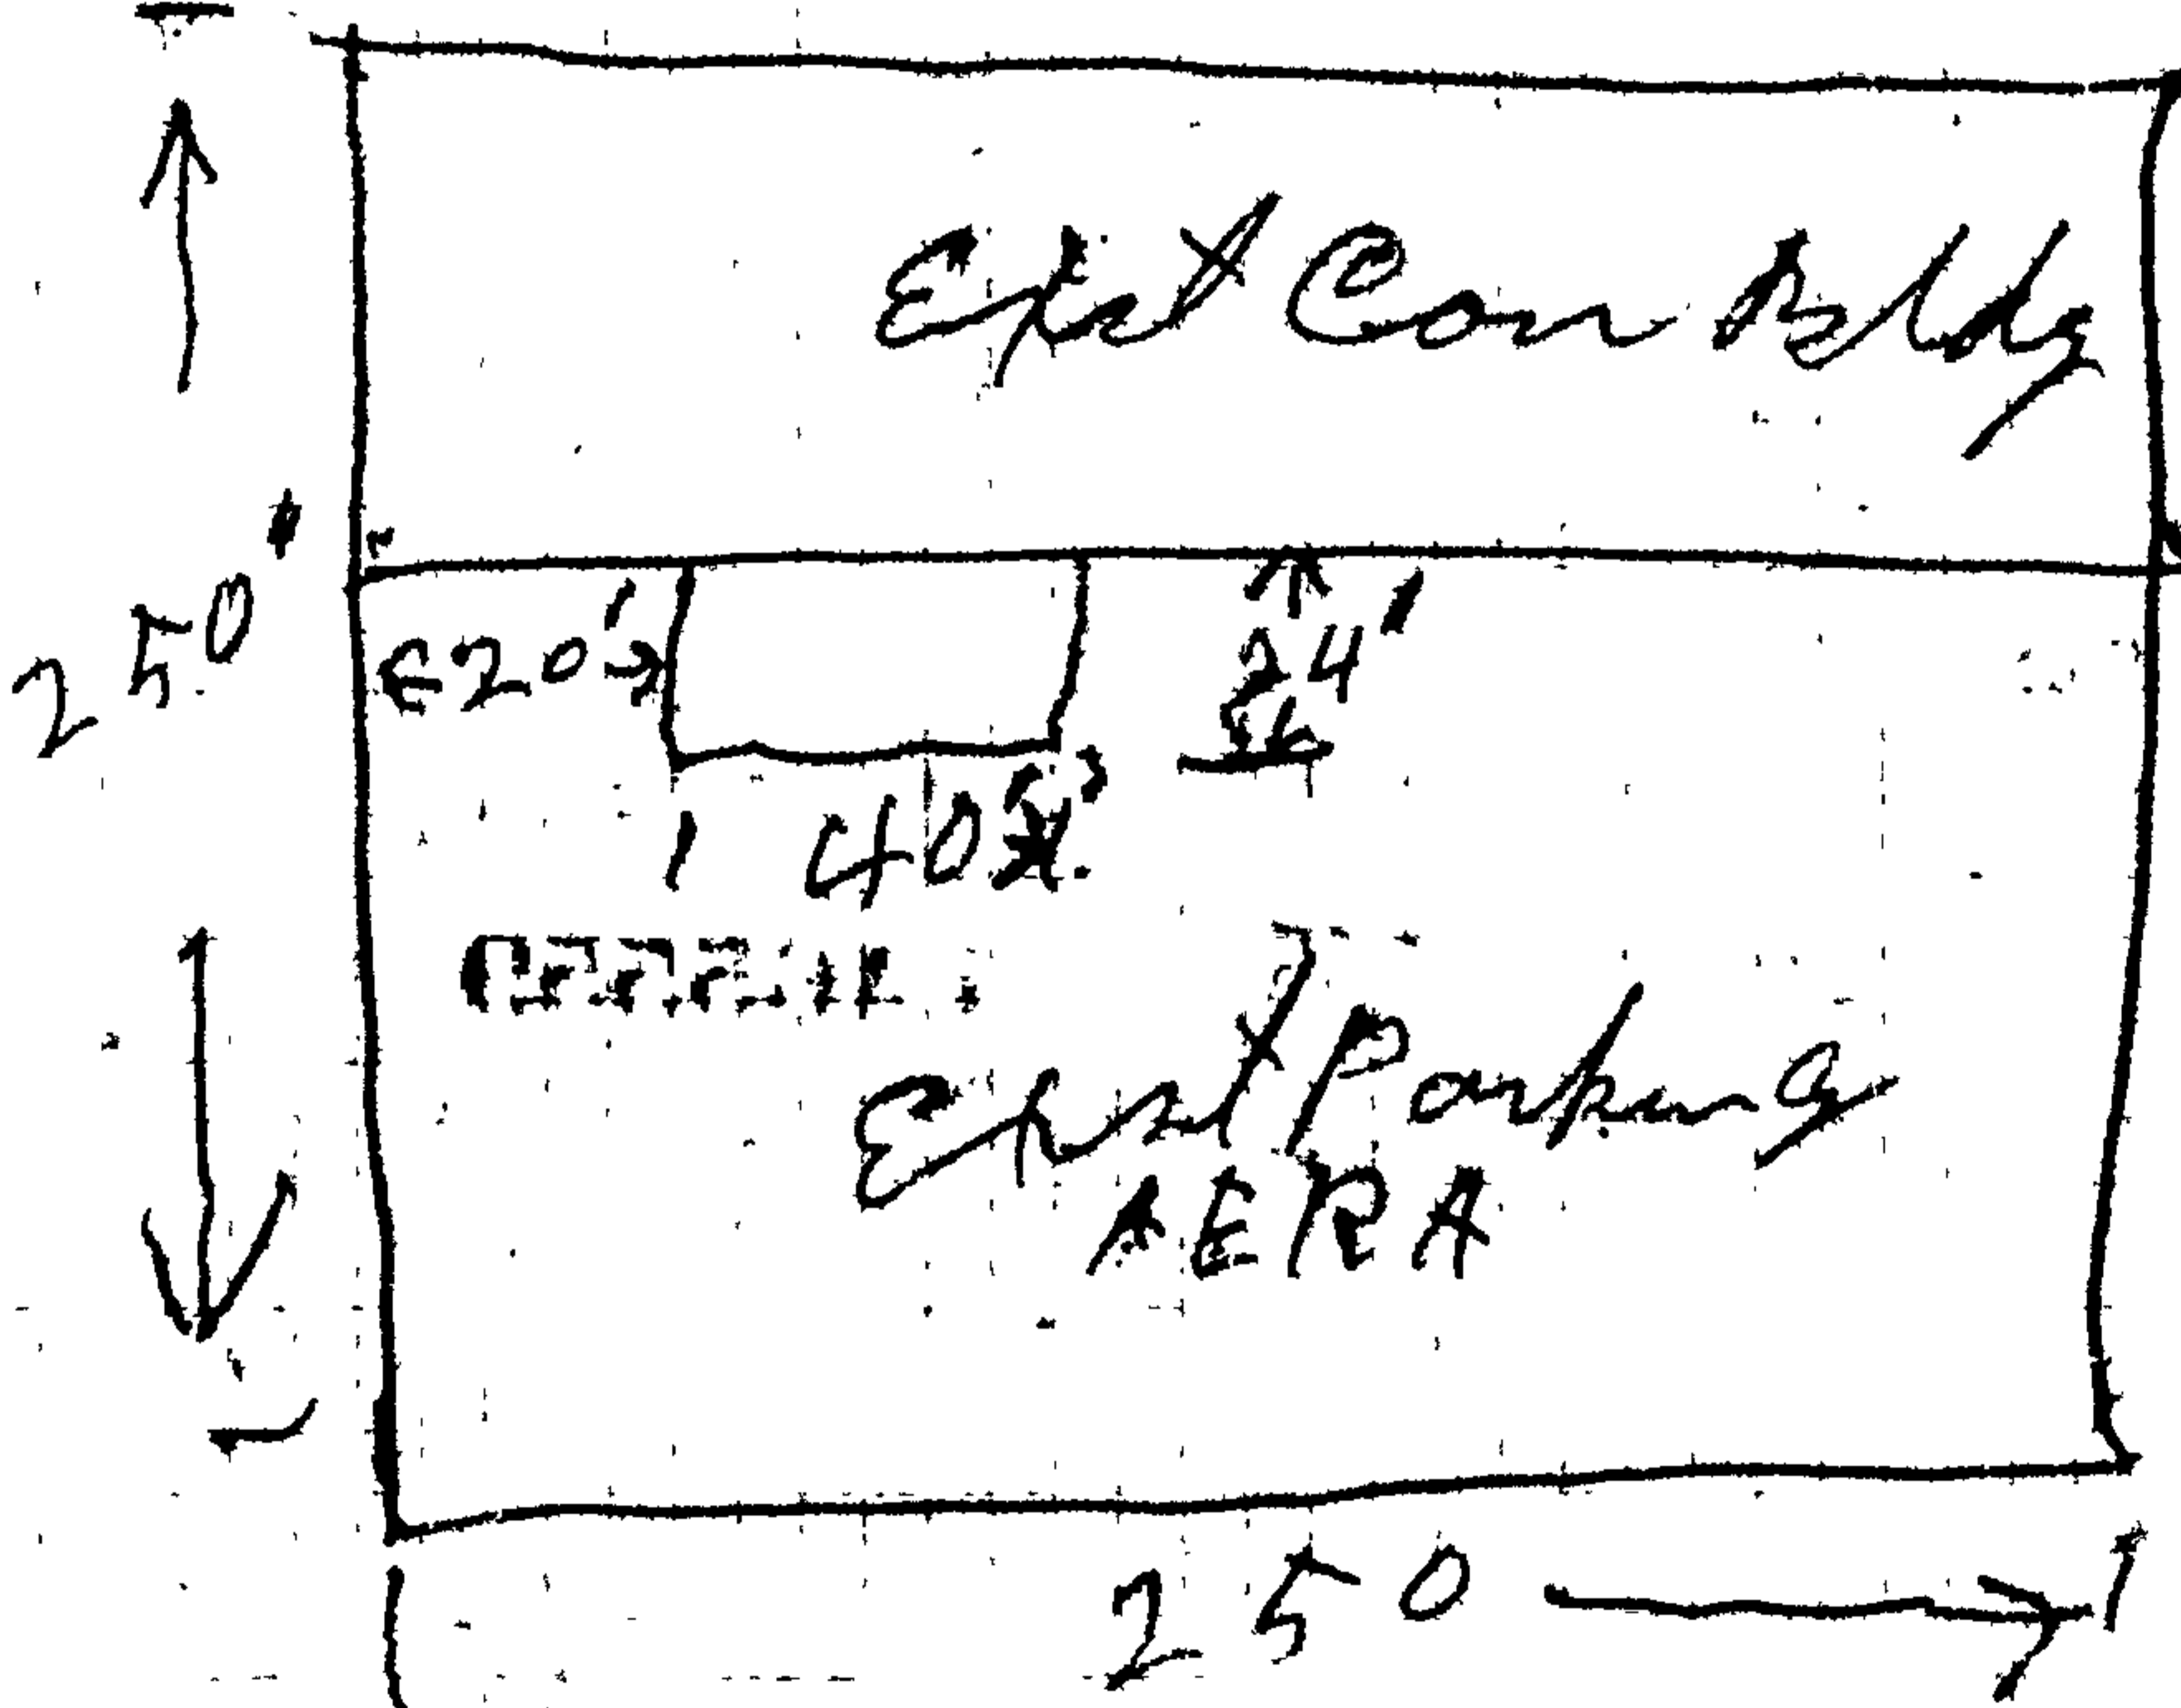 Exist Com Bldg
250'
20'
24'
40
Exist Parking
AERA
250